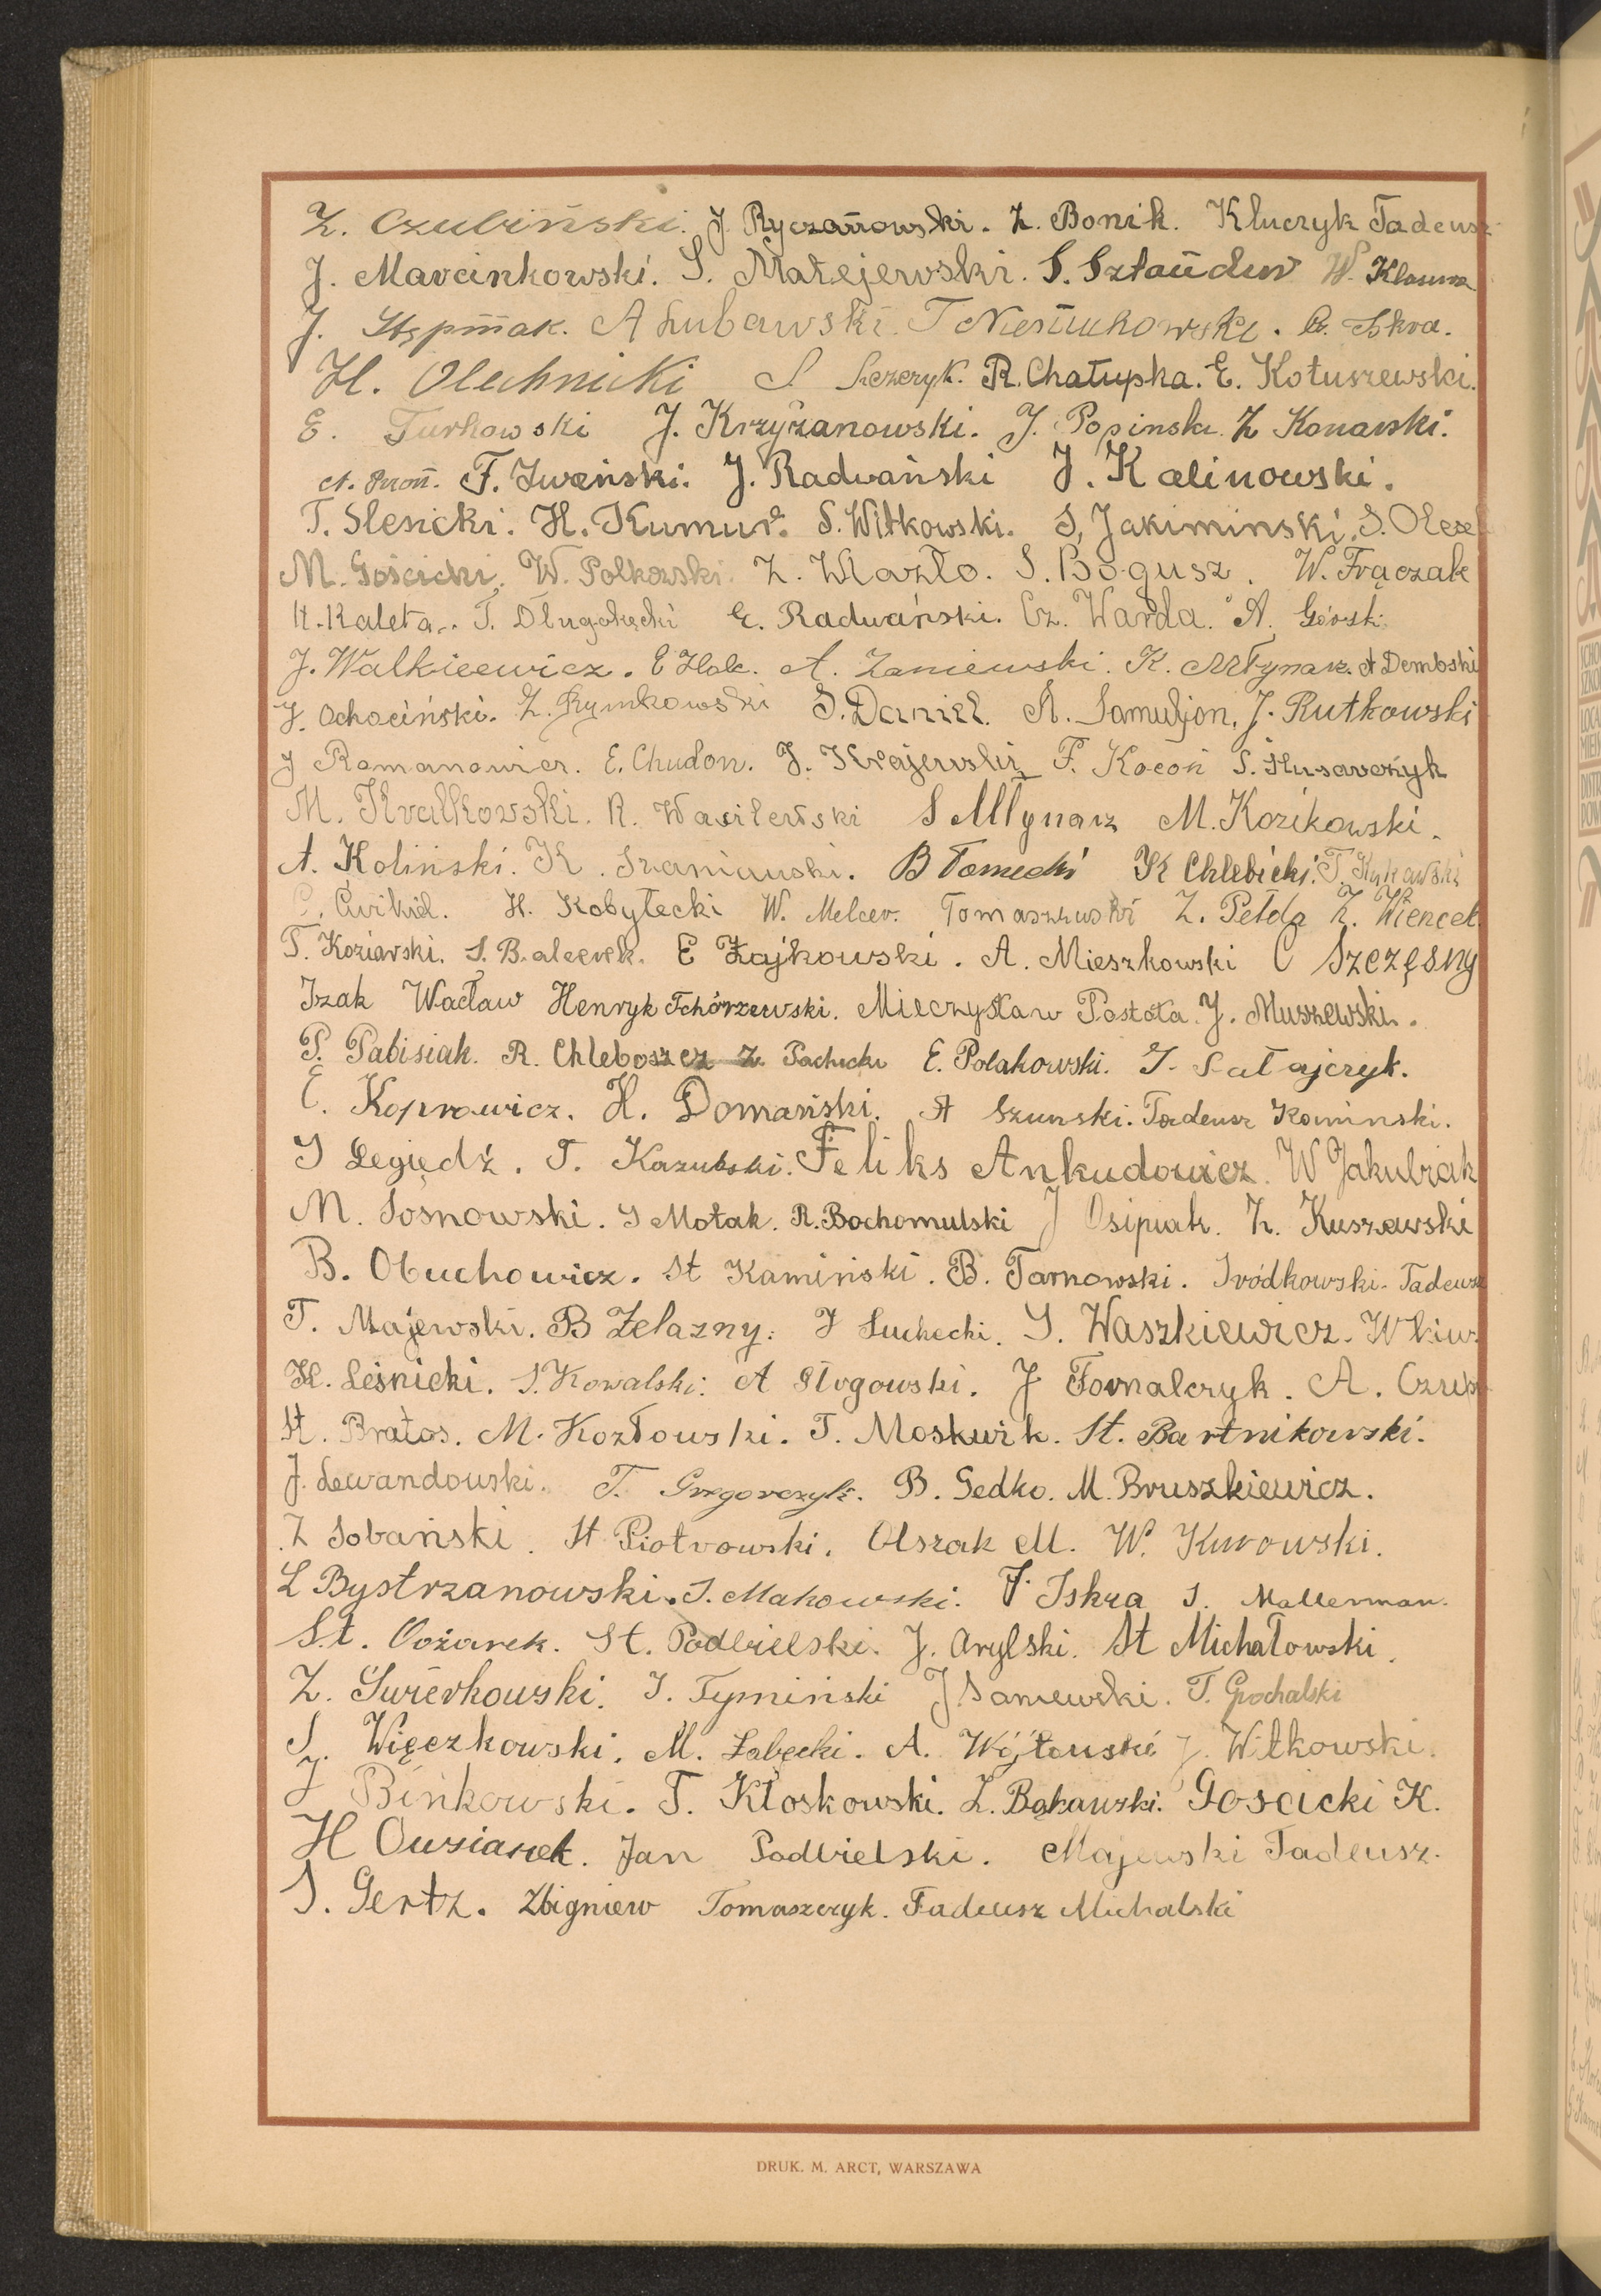 Z. Czubiński. J. Ryczanowski. Z. Bonik. Kluczyk Tadeusz
J. Marcinkowski. S. Matejewski. S. Sztauder W.
J. A Lubawski. T
H. Olechnicki S R. Chałupka. E. Kotuszewski.
E. Turkowski J. Krzyżanowski. J. Popinski. Z Konarski.
F. Iwański. J. Radwański J. Kalinowski.
T. Slesicki. H. Kumur. S. Witkowski. S. Jakiminski. S.
M. Gościcki. W. Polkowski. Z. Wlazło. S. Bogusz. W. Frączak
H. Kaleta. T. Długołęcki E. Radwański. Cz. Warda. A. Górski
J. Walkiewicz. E Hak. A. Zaniewski. K. Młynarz. A Dembski
J. Ochociński. Z. Rymkowski S. Daniel. A. Samuljon. J. Rutkowski
J Romanowicz. E. Chudon. J. Krajewski F. Kocoń S. Husarczyk
M. Kralkowski. R. Wasilewski S Młynarz M. Kozikowski.
A. Koliński. K. Szaniawski. B Tomecki K Chlebicki. T.
C. Ćwikiel. H. Kobyłecki W. Melcer. Tomaszewski Z. Pełda Z. Wiencek
T. Koziarski. S. Balcerek. E Zajkowski. A. Mieszkowski C Szczęsny
Izak Wacław Henryk Tchórzewski. Mieczysław Postoła. J. Muszewski.
P. Pabisiak. R. Chleboszcz Z Pachucki E. Polakowski. J. Satajczyk.
E. Koprowicz. H. Domański. A Szunski. Tadeusz Kaminski.
J Legiędź. T. Kazubski. Feliks Ankudowicz. W Jakubiak
M. Sosnowski. J Motak. R. Bochomulski J Osipiak. Z. Kuszewski
B. Obuchowicz. St Kamiński. B. Tarnowski. Śródkowski. Tadeusz
T. Majewski. B Żelazny. J Suchecki. S. Waszkiewicz. W
H. Leśnicki. S. Kowalski. A Strogowski. J Fornalczyk. A.
St. Bratos. M. Kozłowski. T. Moskwik. St. Bartnikowski.
J. Lewandowski. T. Grzegorczyk. B. Gedko. M. Bruszkiewicz.
Z Sobański. St Piotrowski. Olszak M. W. Kurowski.
L Bystrzanowski. S. Makowski. J. Iskra S. Mallerman.
St. Ożarek. St. Podbielski. J. Arylski. St Michałowski.
Z. Świerkowski. J. Tymiński J Saniewski. T. Grochalski
S. Więczkowski. M. Łabęcki. A. Wójtowski J. Witkowski.
J Binkowski. T. Kłoskowski. Z. Bąkowski. Gościcki K.
H Owsianek. Jan Podbielski. Majewski Tadeusz.
S. Gertz. Zbigniew Tomaszczyk. Tadeusz Michalski
DRUK. M. ARCT, WARSZAWA